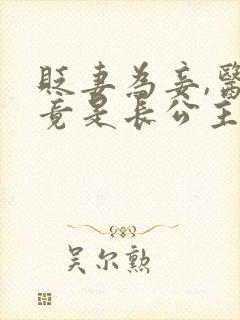 貶妻為妾,醫
竟是長公主
吴尔勲